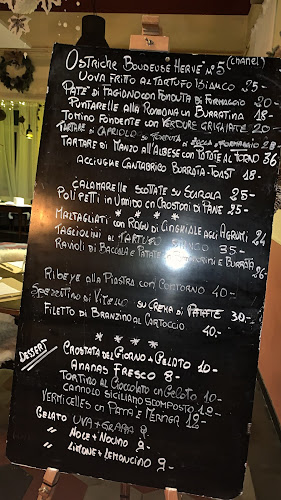 OSTRICHE BOUDEUSE HERVÉ N°5 (CHANEL)
UOVA FRITTO AL TARTUFO BIANCO 25-
PATÈ DI FAGIANO CON FONDUTA DI FORMAGGIO 20-
PUNTARELLE ALLA ROMANA IN BURRATINA 18-
TOMINO FONDENTE CON VERDURE GRIGLIATE 20-
TARTARE DI CAPRIOLO SU FONDUTA FORMAGGIO 28-
TARTARE DI MANZO ALL'ALBESE CON PATATE AL FORNO 36
ACCIUGHE CANTABRICO BURRATA-TOAST 18-
CALAMARELLE SCOTTATE SU SCAROLA 25-
POLIPETTI IN UMIDO CON CROSTONI DI PANE 25-
* * * *
MALTAGLIATI CON RAGÙ DI CINGHIALE AGLI AGRUMI 24
TAGLIOLINI AL TARTUFO BIANCO 35-
RAVIOLI DI BACCALÀ E PATATE E BURRATA 26-
RIBEYE ALLA PIASTRA CON CONTORNO 40-
SPEZZATINO DI VITELLO SU CREMA DI PATATE 30-
FILETTO DI BRANZINO AL CARTOCCIO
40-
* * * *
DESSERT
CROSTATA DEL GIORNO + GELATO 10-
ANANAS FRESCO 8-
TORTINO AL CIOCCOLATO CON GELATO 10-
CANNOLO SICILIANO SCOMPOSTO 12-
VERMICELLES CON PANNA E MERINGA 12-
GELATO UVA + GRAPPA 9
" NOCE + NOCINO 9-
" LIMONE + LEMONCINO 9-